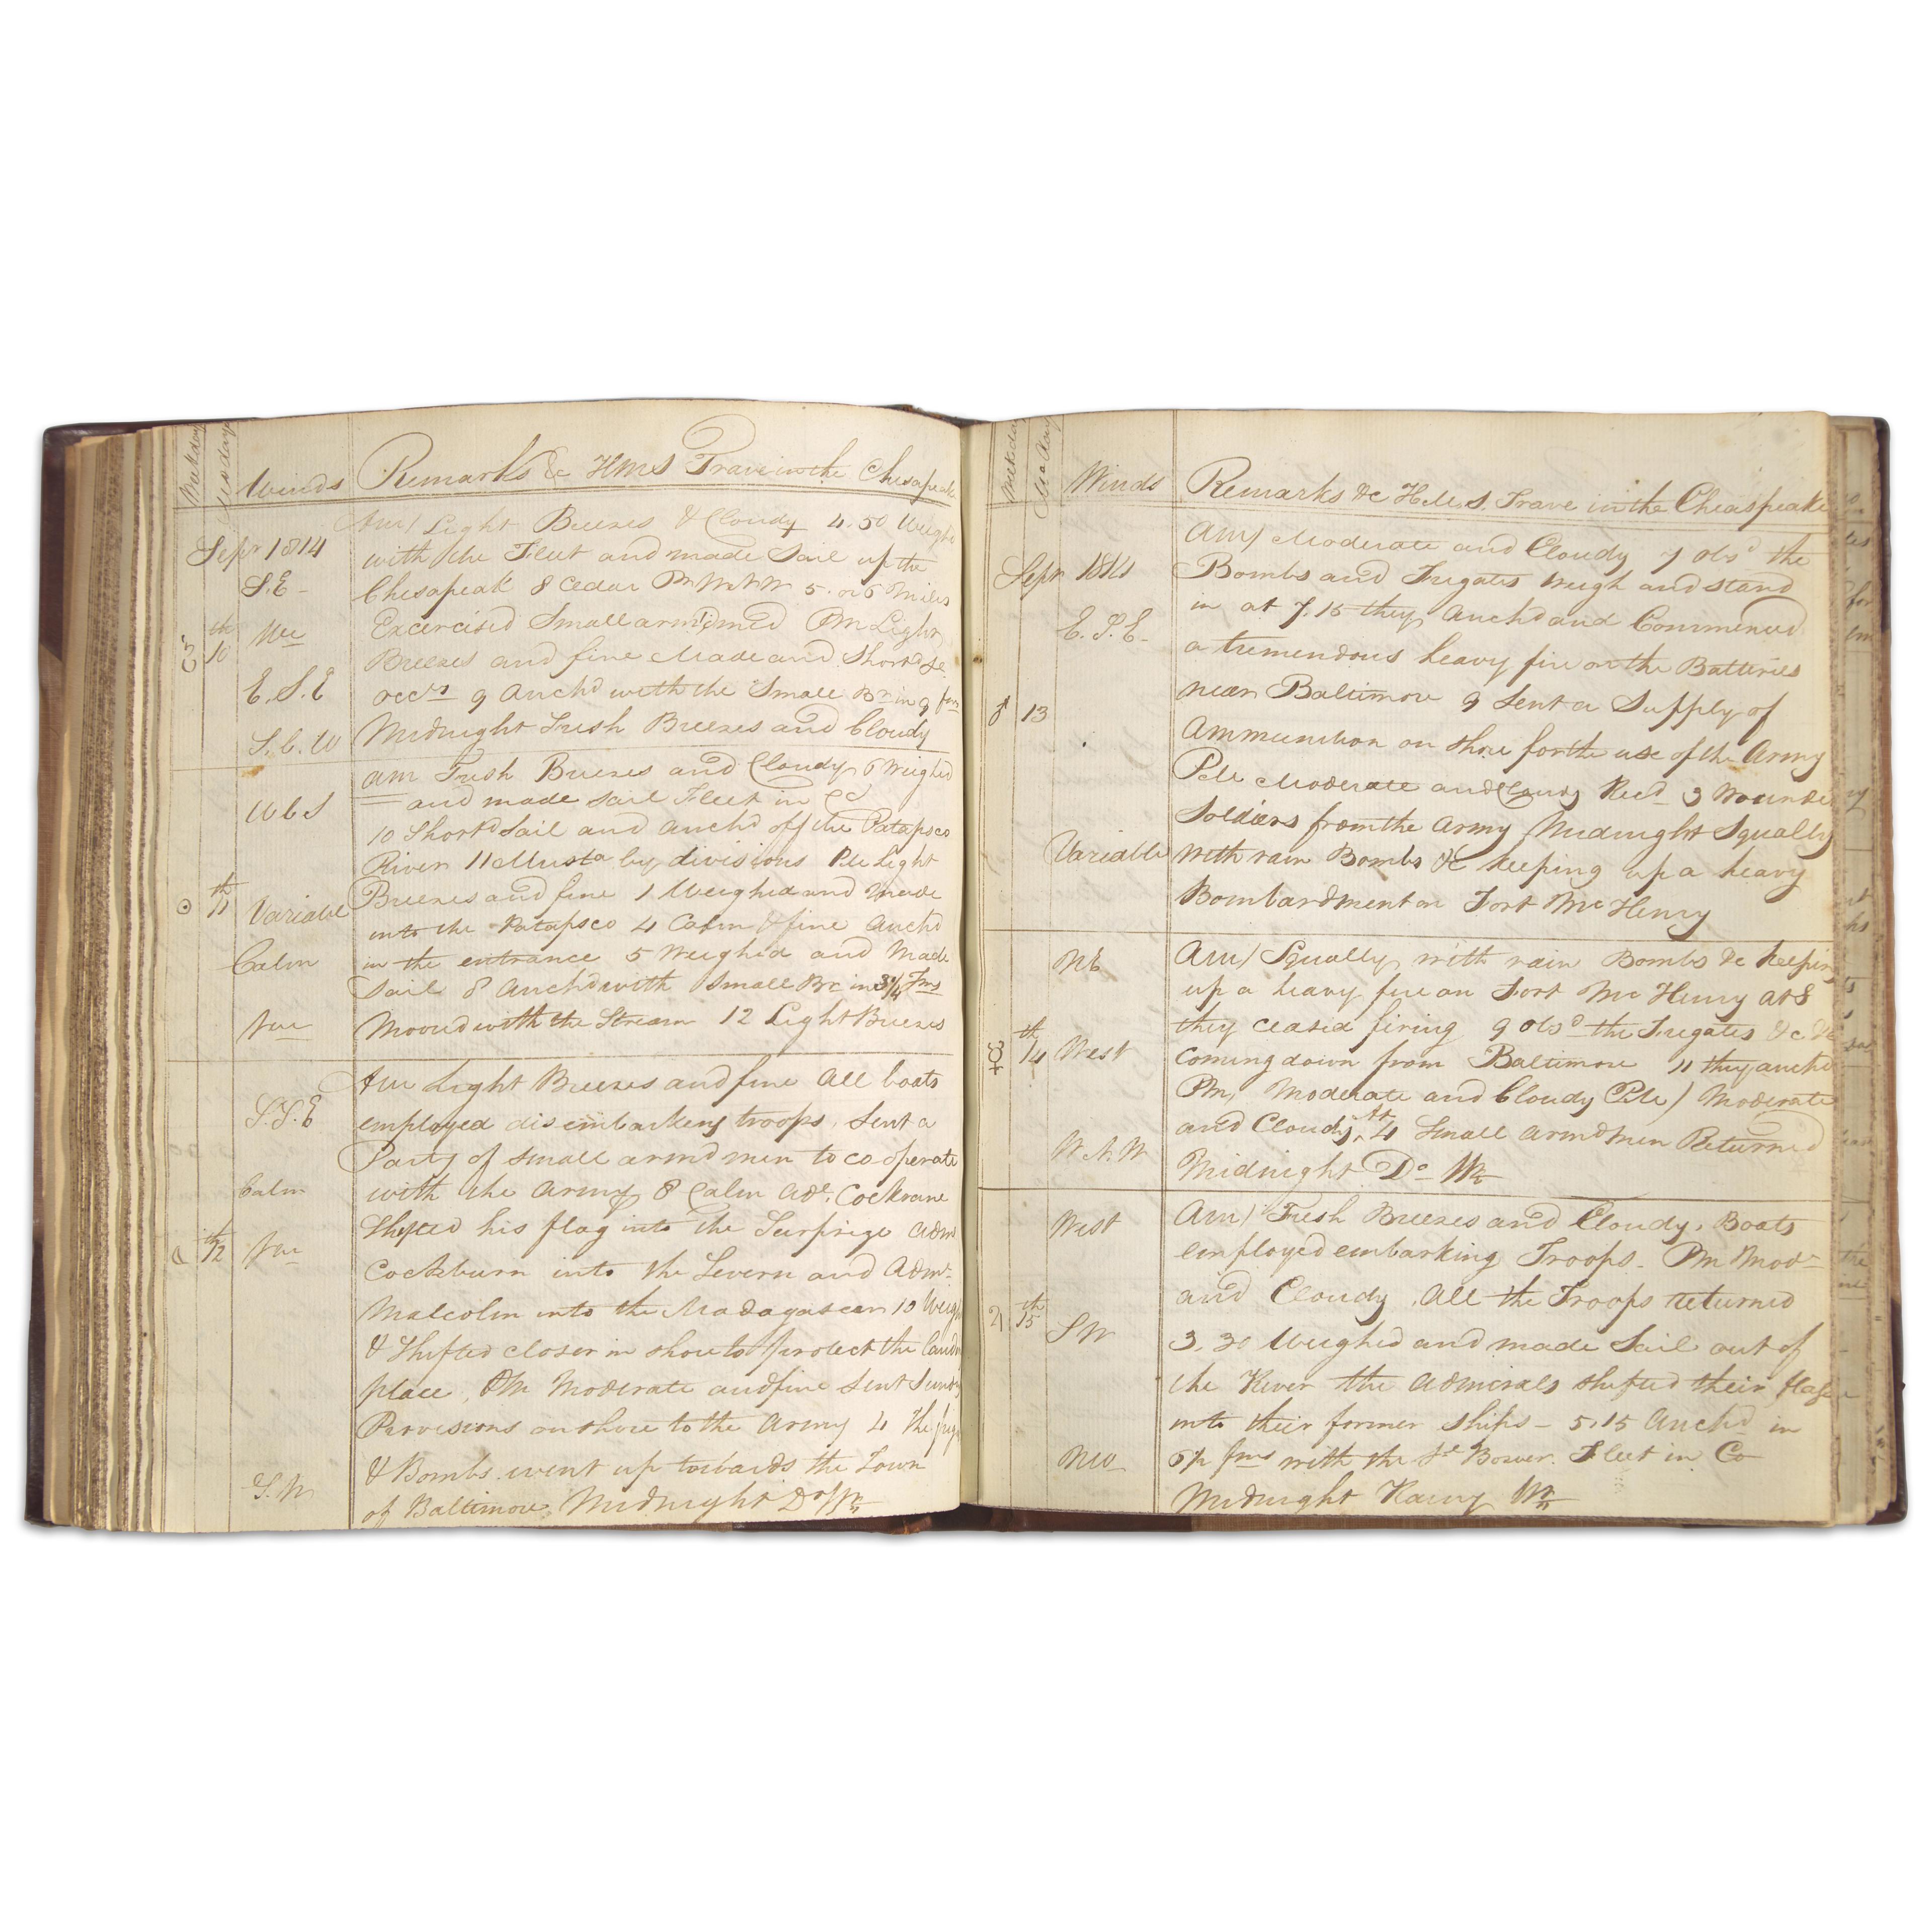 Week days
Winds
Remarks &c HMS Trave in the Chesapeake
Am/ Light Breezes & Cloudy 4.50 Weighd
Sepr 1814
with the Fleet and made Sail up the
S.E
Chesapeak 8 Cedar Pt WNW 5. or 6 Miles
Excercised Small arm'd med PM Light
th
10
Breezes and fine Made and Shortd Se
E.S.E
occly 9 Anchd with the Small Br in 9 fms
S.b.W
Midnight Fresh Breezes and Cloudy
am Fresh Breezes and Cloudy 6 Weighed
and made Sail Fleet in Co
W b S
10 Shortd Sail and Anchd off the Patapsco
River 11 Musta by divisions PM Light
☉
th
11
Variable
Breezes and fine 1 Weighed and Made
into the Patapsco 4 Calm & fine Anchd
Calm
in the entrance 5 Weighed and Made
Sail 8 Anchd with Small Br in 3 1/4 Fms
Moored with the Stream 12 Light Breezes
Am Light Breezes and fine All boats
S.S.E
employed disembarking troops, Sent a
Party of Small armd men to co operate
Calm
with the Army 8 Calm Adl. Cockrane
th
12
Shifted his flag into the Surprize Adml
Cockburn into the Severn and Adml
Malcolm into the Madagascar 10 Weigh
& Shifted closer in shore to protect the landn
place, PM Moderate and fine Sent Sundry
Provisions on shore to the Army 4 The frig
& Bombs went up towards the Town
S.W
of Baltimore Midnight Do Wr
Week day
Winds
Remarks &c H.M.S. Trave in the Cheaspeake
Am/ Moderate and Cloudy 7 obsd the
Sepr 1814
Bombs and Frigates weigh and stand
E.S.E
in at 7.15 they Anchd and Commenced
a tremendous heavy fire on the Batteries
♂ 13
near Baltimore 9 Sent a Supply of
Ammunition on shore for the use of the Army
PM Moderate and Cloudy Recd 3 Wounded
Soldiers from the Army Midnight Squally
Variable
with rain Bombs &c keeping up a heavy
Bombardment on Fort Mc Henry
NE
Am/ Squally with rain Bombs &c keeping
up a heavy fire on Fort Mc Henry at 8
they ceased firing 9 obsd the Frigates &c &c
☿
th
14
West
coming down from Baltimore 11 they anchd
Pm, Moderate and Cloudy PM/ Moderate
and Cloudy, At 4 Small armd men Returned
W.N.W
Midnight Do Wr
West
Am/ Fresh Breezes and Cloudy, Boats
employed embarking Troops. Pm Modr
and Cloudy, All the Troops returned
♃
th
15
SW
3.30 Weighed and made Sail out of
the River the Admirals shifted their flags
into their former Ships – 5.15 Anchd in
NW
6 1/2 fms with the St Bower. Fleet in Co
Midnight Rainy Wr